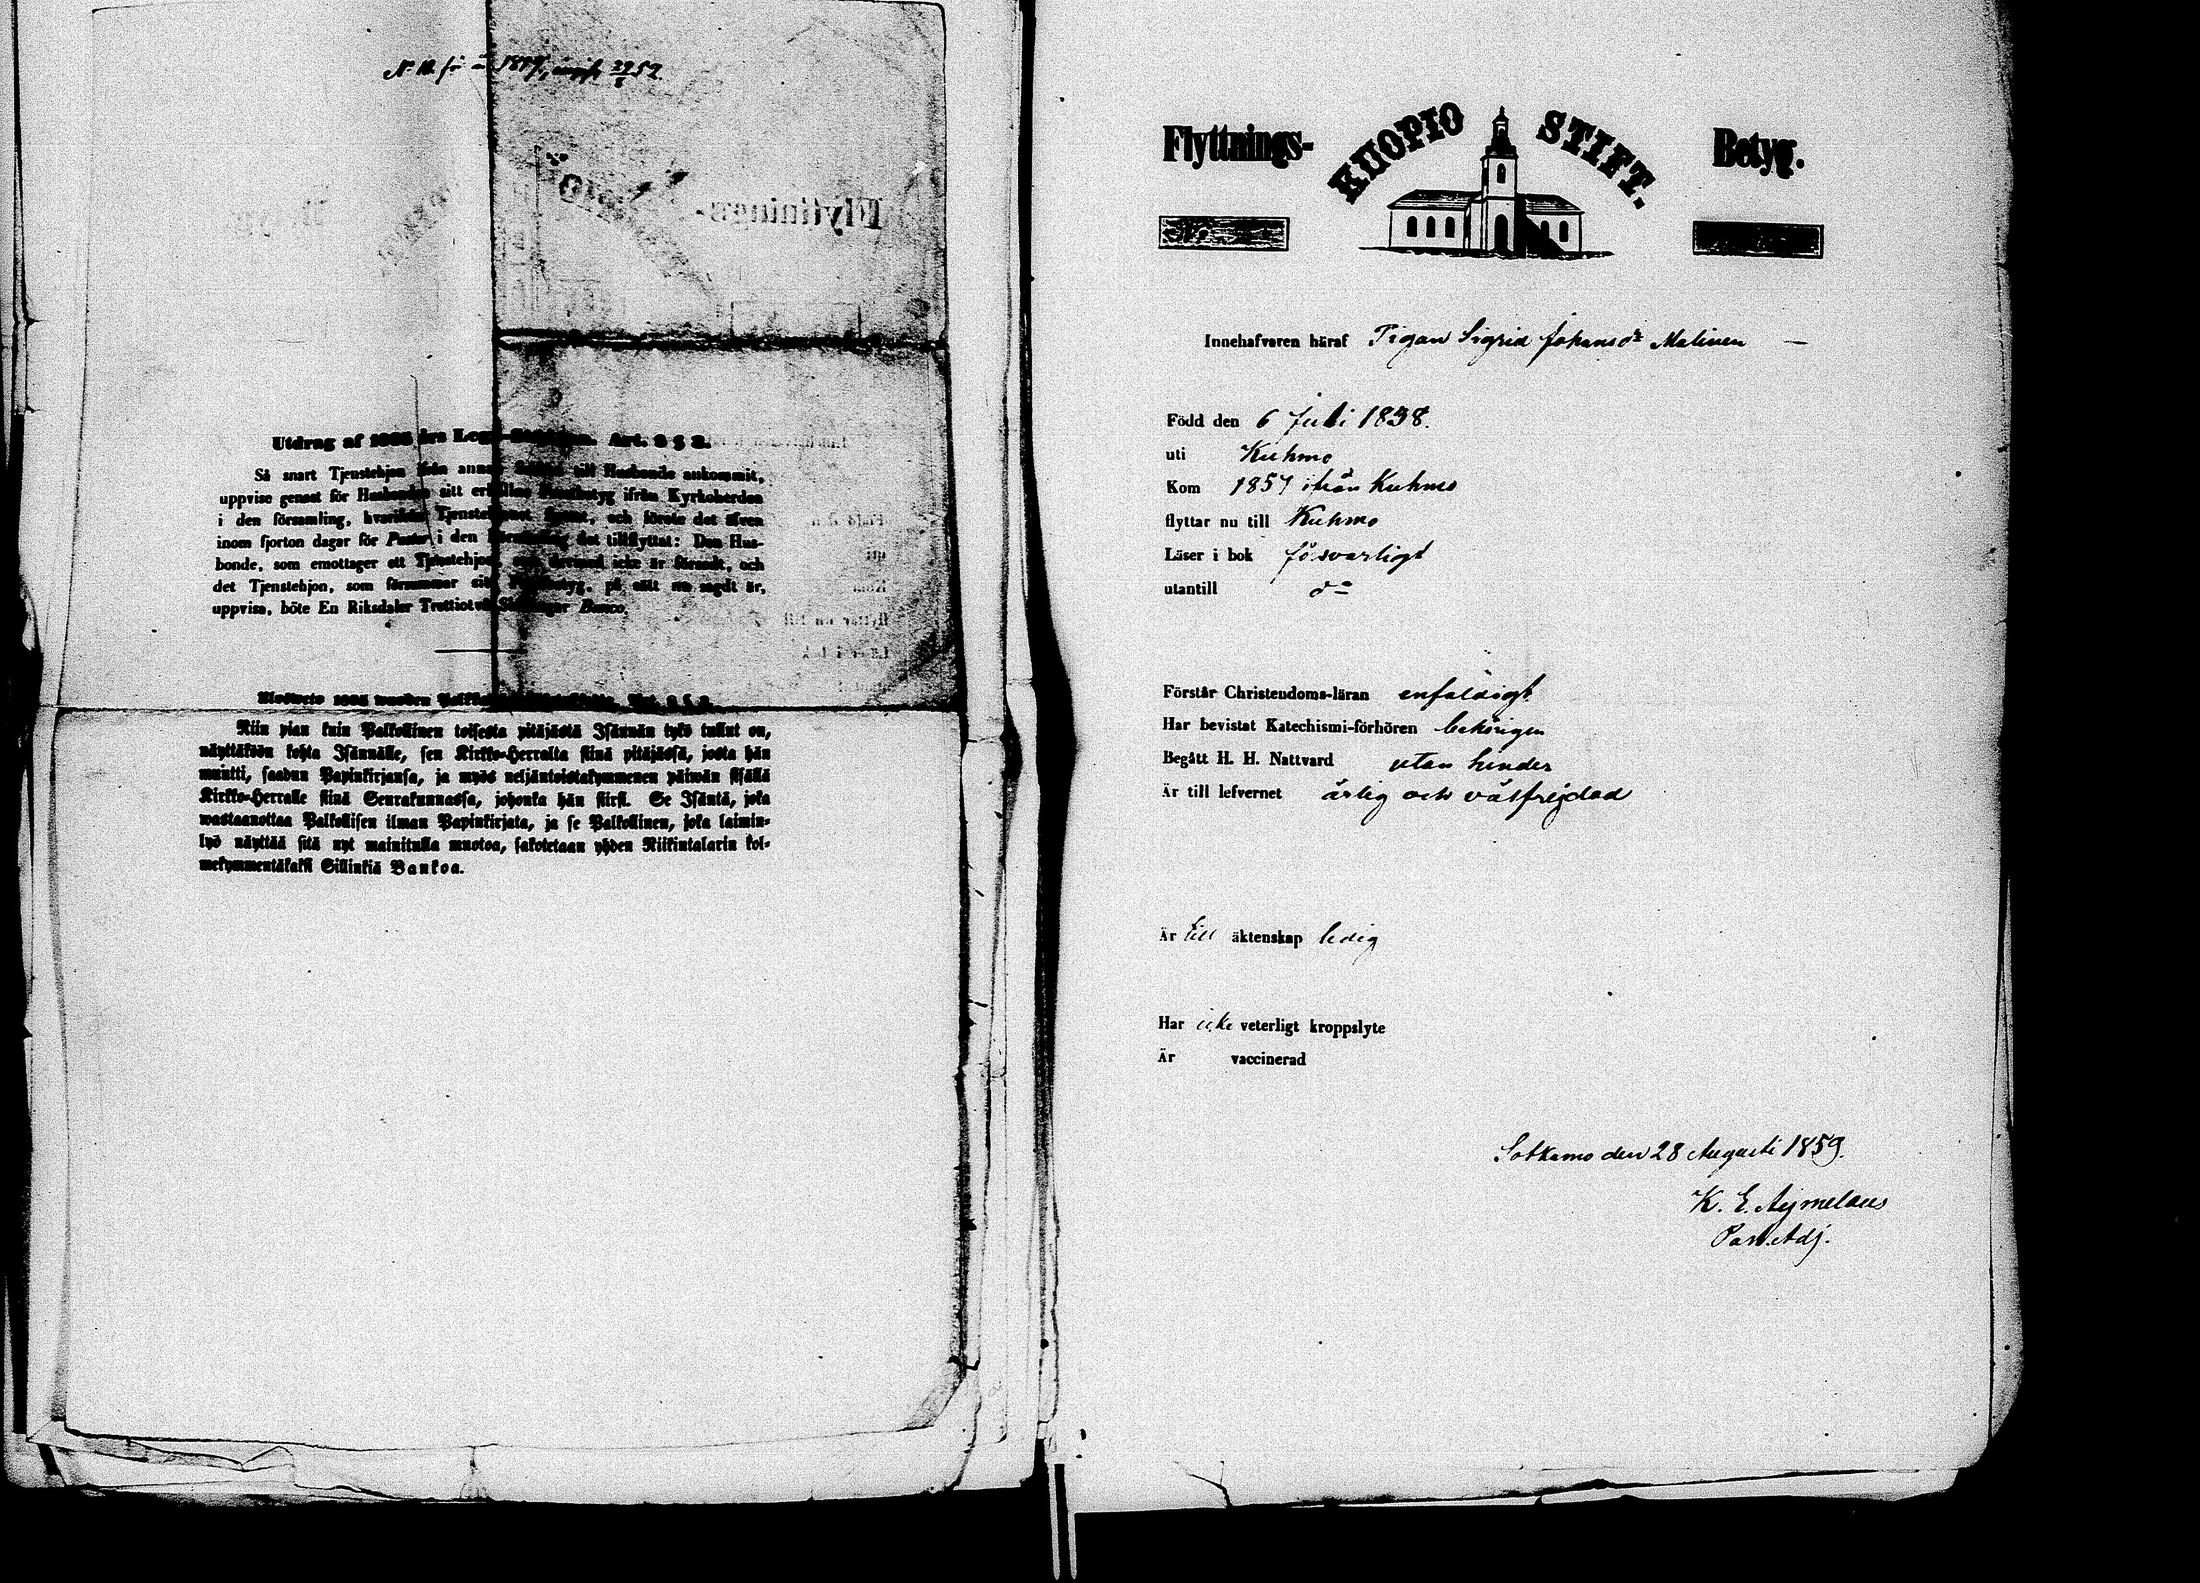 Utdrag af 1805 års Art. 8 § 2.
Så snart Tjenstehjon ifrån till Husbonde ankommit,
uppvise genast för Husbonden sitt ifrån Kyrkoherden
i den församling, och förete det äfven
inom fjorton dagar för Pastor i den det tillflyttat: Den Hus-
bonde, som emottager ett Tjenstehjon, icke är försedt, och
det Tjenstehjon, som försummar sitt på sätt nu sagdt är,
uppvisa, böte En Riksdaler Trettiotvå Skillingar Banco.
Niin pian kuin Palkollinen toisesta pitäjästä Isännän tykö tullut on,
näyttäköön kohta Isännälle, sen Kirkko-Herralta siinä pitäjässä, josta hän
muutti, saadun Papinkirjansa, ja myös neljäntoistakymmenen päiwän sisällä
Kirkko-Herralle siinä Seurakunnassa, johonka hän siirsi. Se Isäntä, joka
wastaanottaa Palkollisen ilman Papinkirjata, ja se Palkollinen, joka laimin-
lyö näyttää sitä nyt mainitulla muotoa, sakotetaan yhden Riikintalarin kol-
mekymmentäkaksi Sillinkiä Bankoa.
Flyttnings- KUOPIO STIFT. Betyg.
Innehafvaren häraf Pigan Sigrid Johansdr Malinen
Född den 6 Juli 1838.
uti Kuhmo
Kom 1857 ifrån Kuhmo
flyttar nu till Kuhmo
Läser i bok försvarligt
utantill do
Förstår Christendoms-läran enfaldigt
Har bevistat Katechismi-förhören behörigen
Begått H. H. Nattvard utan hinder
Är till lefvernet ärlig och välfrejdad
Är till äktenskap ledig
Har icke veterligt kroppslyte
Är vaccinerad
Sotkamo den 28 Augusti 1859.
K. E. Aejmelaeus
Past. Adj.